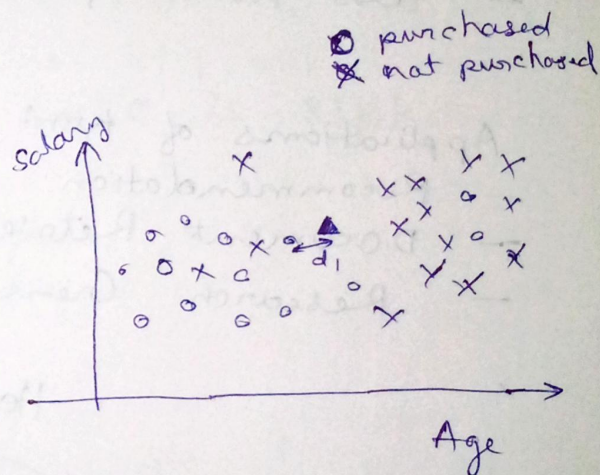 O purchased
X not purchased
Salary
d1
Age